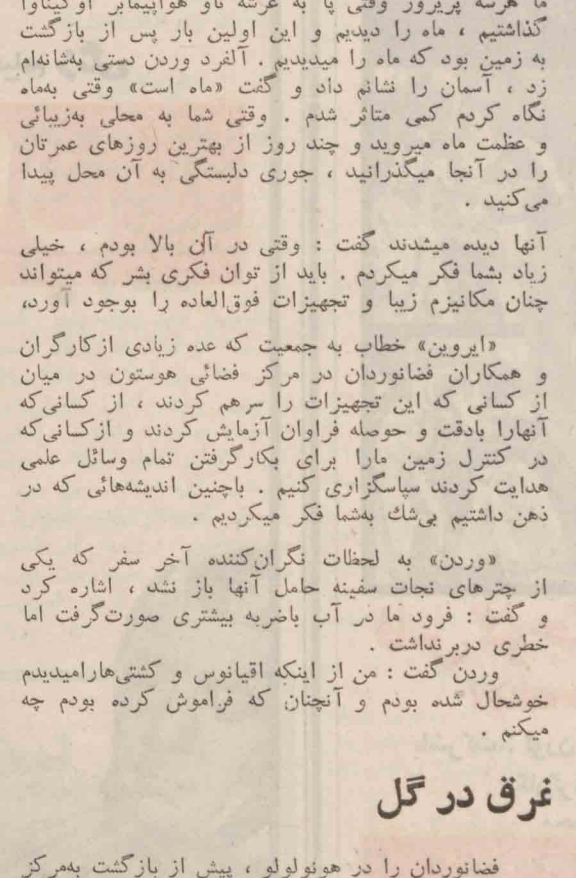 ما هرسه پریروز وقتی پا به عرشه ناو هواپیمابر اوکیناوا
گذاشتیم ، ماه را دیدیم و این اولین بار پس از بازگشت
به زمین بود که ماه را میدیدیم . آلفرد وردن دستی به‌شانه‌ام
زد ، آسمان را نشانم داد و گفت «ماه است» وقتی به‌ماه
نگاه کردم کمی متاثر شدم . وقتی شما به محلی به‌زیبائی
و عظمت ماه میروید و چند روز از بهترین روزهای عمرتان
را در آنجا میگذرانید ، جوری دلبستگی به آن محل پیدا
می‌کنید .
آنها دیده میشدند گفت : وقتی در آن بالا بودم ، خیلی
زیاد بشما فکر میکردم . باید از توان فکری بشر که میتواند
چنان مکانیزم زیبا و تجهیزات فوق‌العاده را بوجود آورد،
«ایروین» خطاب به جمعیت که عده زیادی ازکارگران
و همکاران فضانوردان در مرکز فضائی هوستون در میان
از کسانی که این تجهیزات را سرهم کردند ، از کسانی‌که
آنهارا بادقت و حوصله فراوان آزمایش کردند و ازکسانی‌که
در کنترل زمین مارا برای بکارگرفتن تمام وسائل علمی
هدایت کردند سپاسگزاری کنیم . باچنین اندیشه‌هائی که در
ذهن داشتیم بی‌شك به‌شما فکر میکردیم .
«وردن» به لحظات نگران‌کننده آخر سفر که یکی
از چترهای نجات سفینه حامل آنها باز نشد ، اشاره کرد
و گفت : فرود ما در آب باضربه بیشتری صورت‌گرفت اما
خطری دربرنداشت .
وردن گفت : من از اینکه اقیانوس و کشتی‌هارامیدیدم
خوشحال شده بودم و آنچنان که فراموش کرده بودم چه
میکنم .
غرق در گل
فضانوردان را در هونولولو ، پیش از بازگشت به‌مرکز